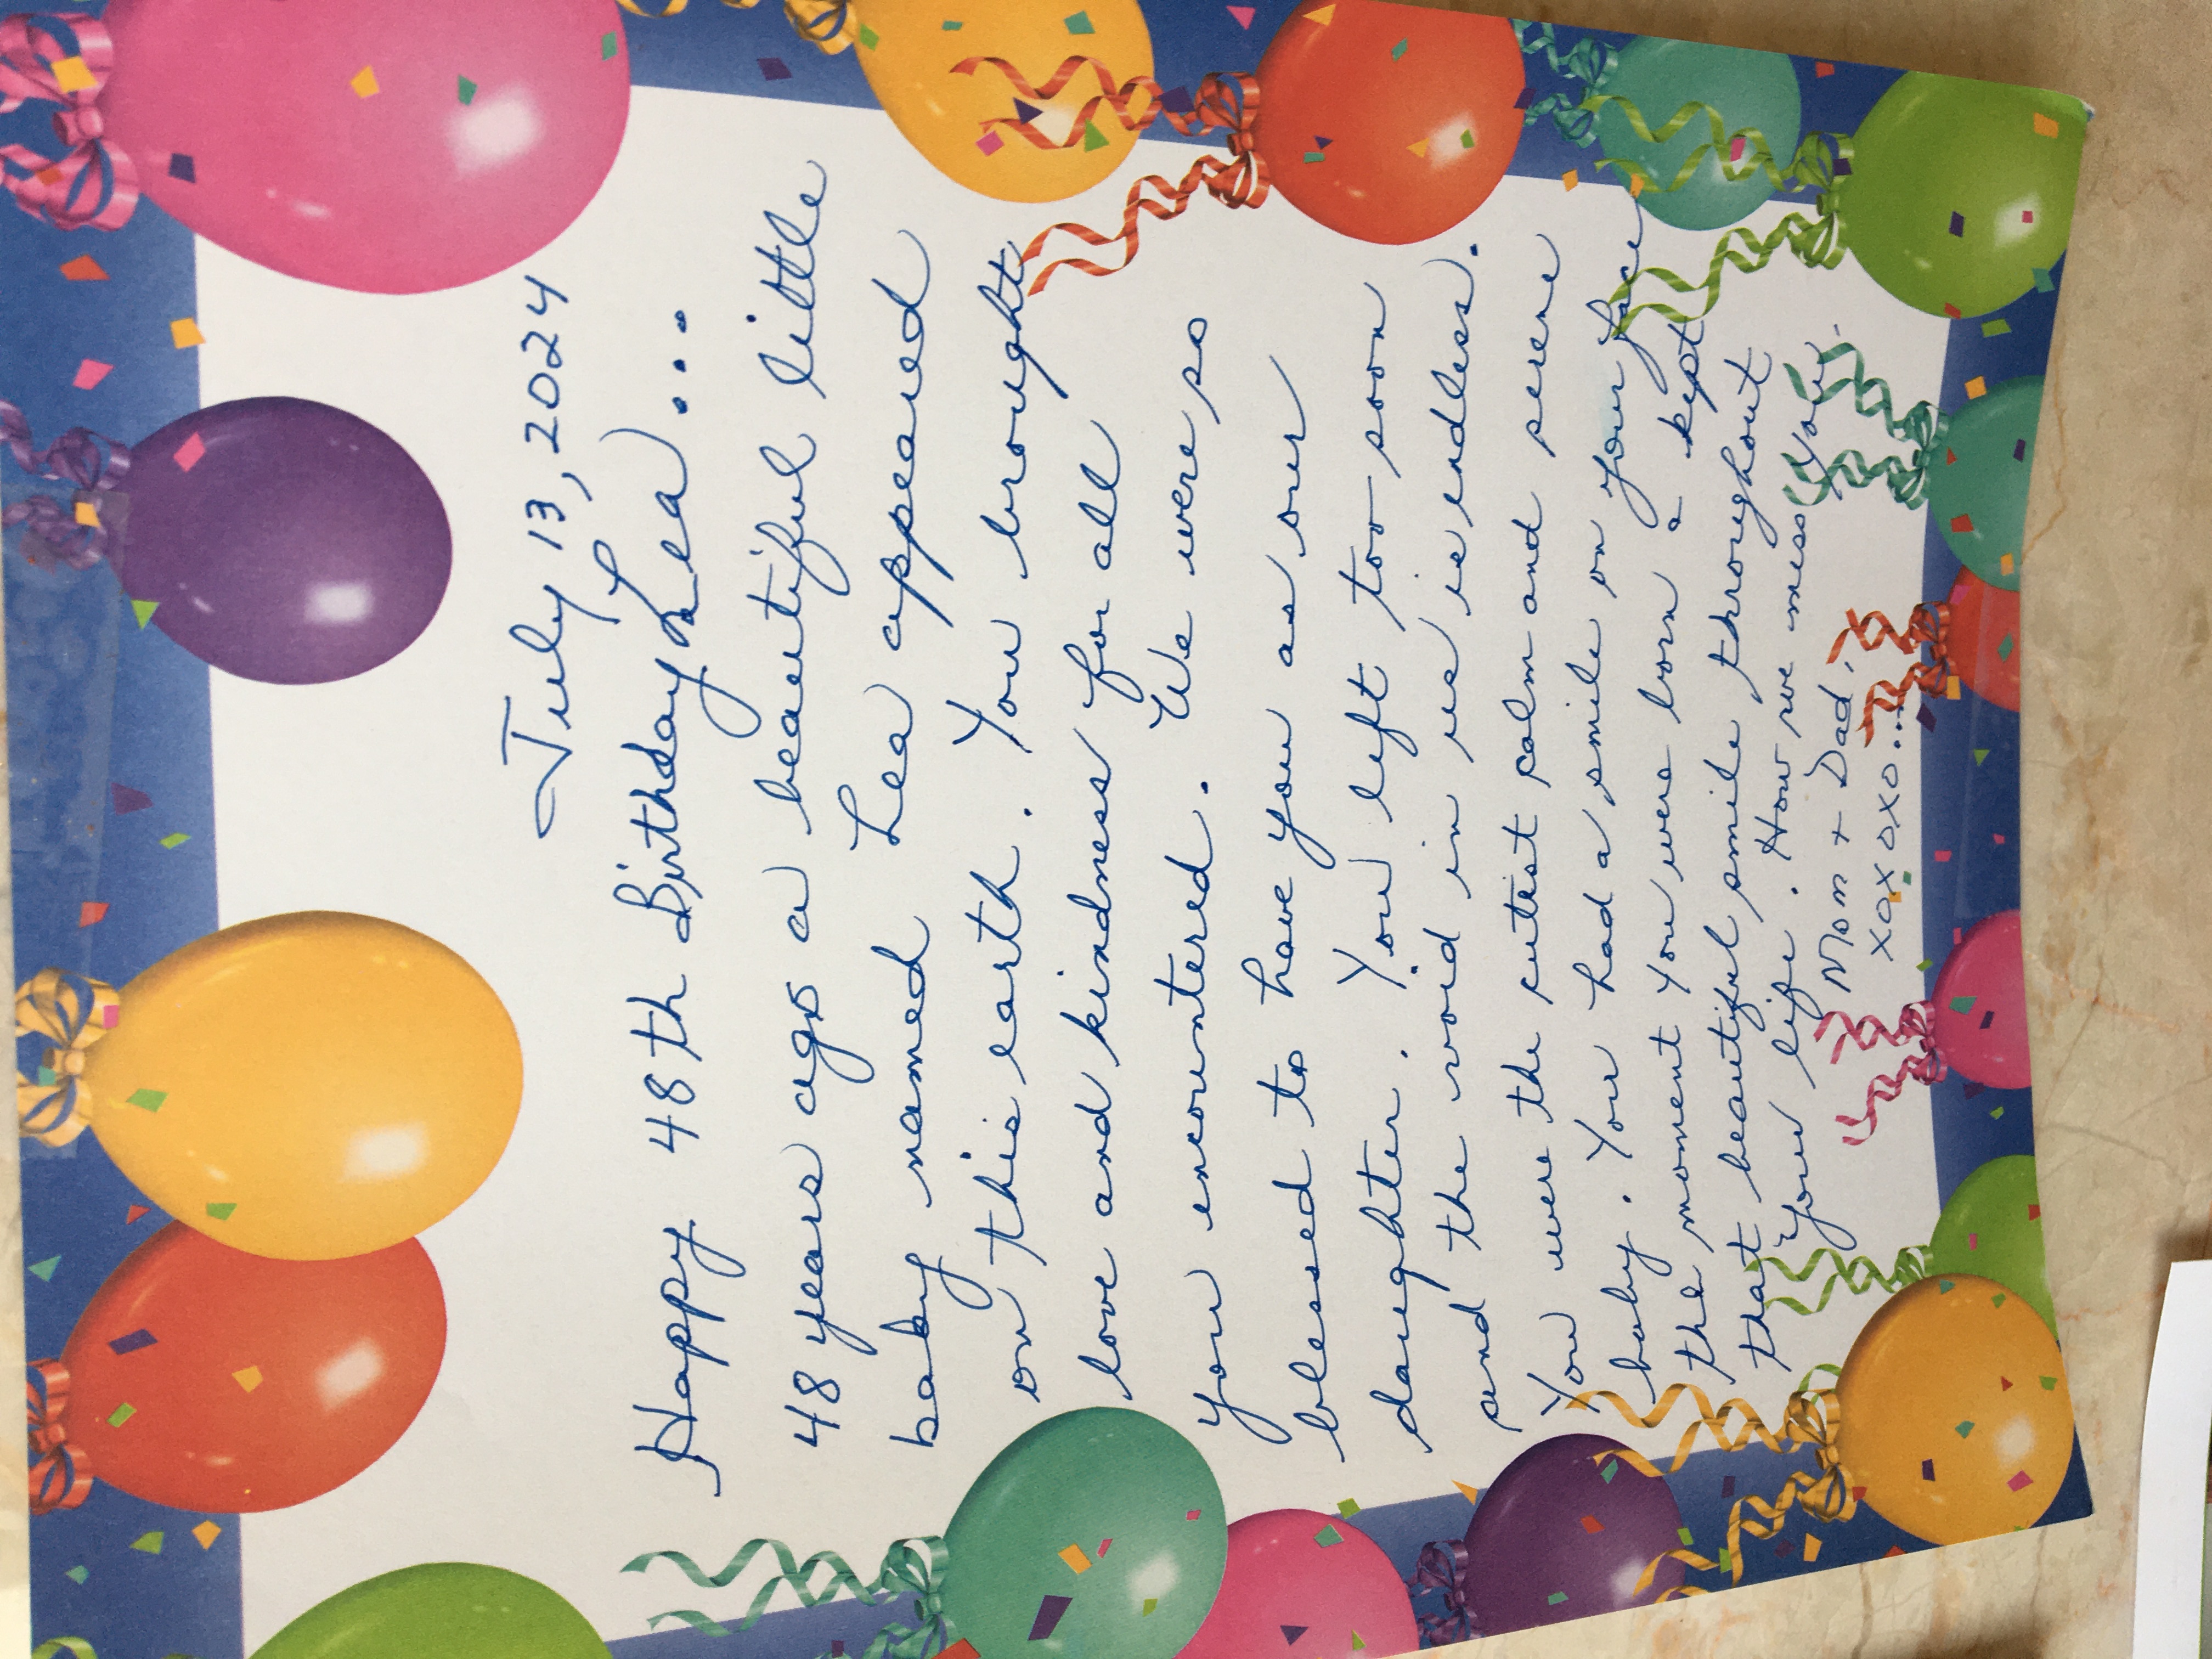 July 13, 2024
Happy 48th Birthday Lea...
48 years ago a beautiful little
baby named Lea appeared
on this earth. You brought
love and kindness for all
you encountered. We were so
blessed to have you as our
daughter. You left too soon
and the void in us is endless.
You were the cutest calm and serene
baby. You had a smile on your face
the moment you were born & kept
that beautiful smile throughout
your life. How we miss you.
Mom + Dad
xoxoxo...